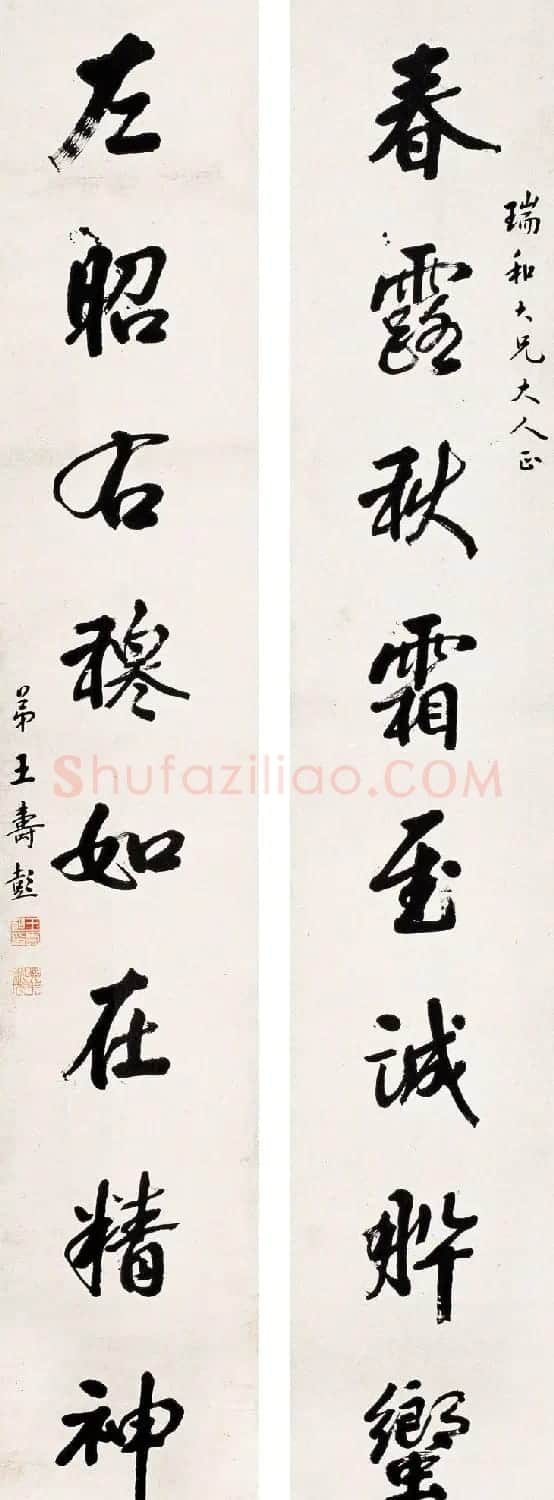 瑞和大兄大人正
春露秋霜至誠肸蠁
左昭右穆如在精神
弟王壽彭
Shufaziliao.COM